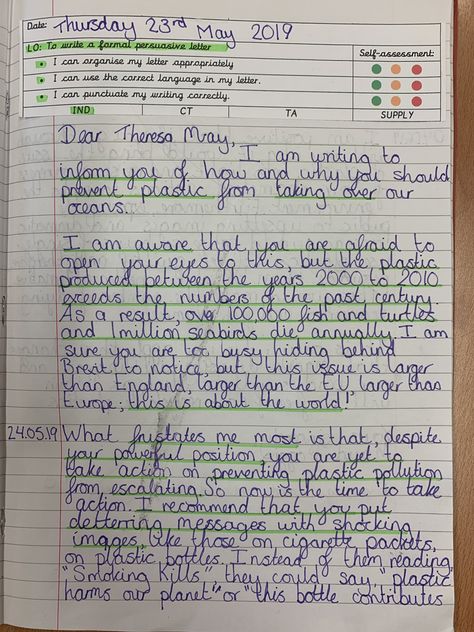 Date: Thursday 23rd May 2019
LO: To write a formal persuasive letter
Self-assessment:
I can organise my letter appropriately
I can use the correct language in my letter.
I can punctuate my writing correctly.
IND CT TA SUPPLY
Dear Theresa May,
I am writing to
inform you of how and why you should
prevent plastic from taking over our
oceans.
I am aware that you are afraid to
open your eyes to this, but the plastic
produced between the years 2000 to 2010
exceeds the numbers of the past century.
As a result, over 100,000 fish and turtles
and 1 million seabirds die annually. I am
sure you are too busy hiding behind
Brexit to notice, but this issue is larger
than England, larger than the EU larger than
Europe; this is about the world!
24.05.19 What frustates me most is that, despite
your powerful position, you are yet to
take action on preventing plastic pollution
from escalating. So now is the time to take
action. I recommend that you put
deterring messages with shocking
images, like those on cigarette packets,
on plastic bottles. Instead of them reading,
"Smoking Kills", they could say, "plastic
harms our planet" or "this bottle contributes